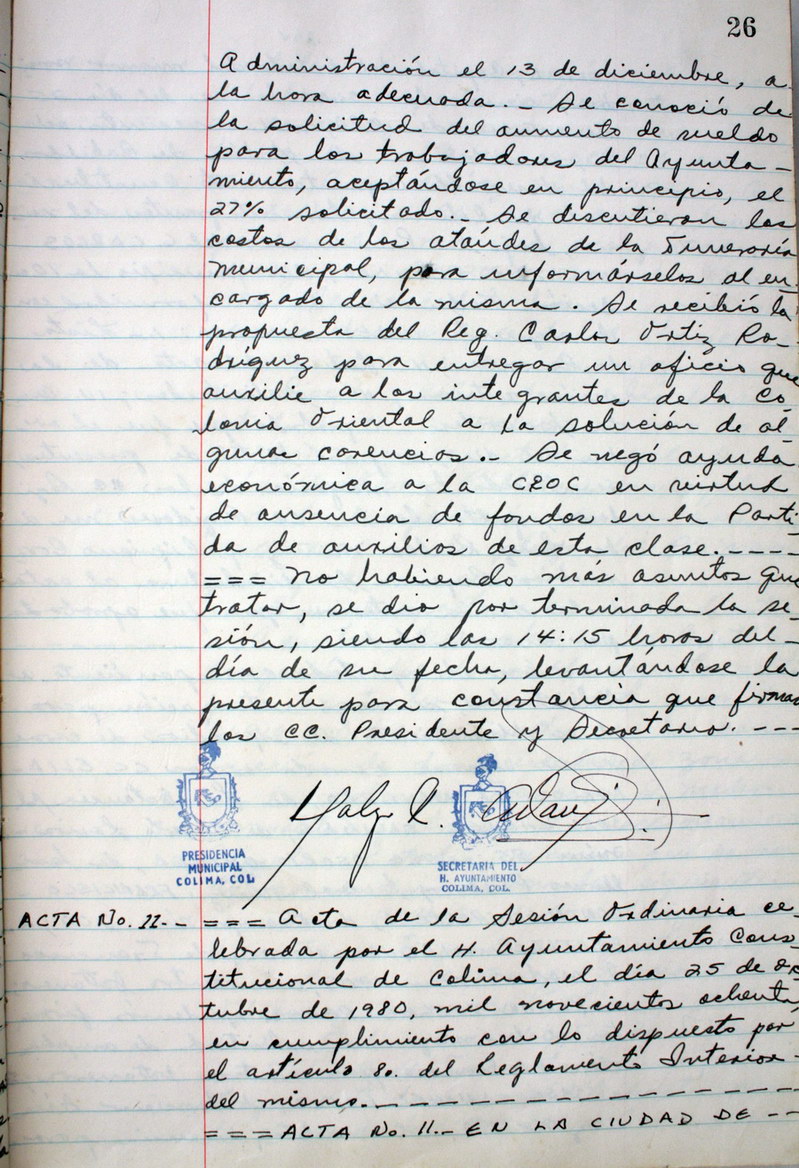 26
Administración el 13 de diciembre, a
la hora adecuada.- Se conoció de
la solicitud del aumento de sueldo
para los trabajadores del Ayunta-
miento, aceptándose en principio, el
27% solicitado.- Se discutieron los
costos de los ataúdes de la Funeraria
Municipal, para informárselos al en-
cargado de la misma. Se recibió la
propuesta del Reg. Carlos Ortiz Ro-
dríguez para entregar un oficio que
auxilie a los integrantes de la Co
lonia Oriental a la solución de al
gunas carencias.- Se negó ayuda
económica a la CROC en virtud
de ausencia de fondos en la Parti-
da de auxilios de esta clase.----
=== No habiendo más asuntos que
tratar, se dio por terminada la se-
sión, siendo las 14:15 horas del-
día de su fecha, levantándose la
presente para constancia que firman
los CC. Presidente y Secretario.---
PRESIDENCIA
MUNICIPAL
COLIMA, COL.
SECRETARIA DEL
H. AYUNTAMIENTO
COLIMA, COL.
ACTA No. 11.- === Acta de la Sesión Ordinaria ce-
lebrada por el H. Ayuntamiento Cons-
titucional de Colima, el día 25 de oc-
tubre de 1980, mil novecientos ochenta,
en cumplimiento con lo dispuesto por
el artículo 8o. del Reglamento Interior-
del mismo.-----------------
===ACTA No. 11.- EN LA CIUDAD DE --